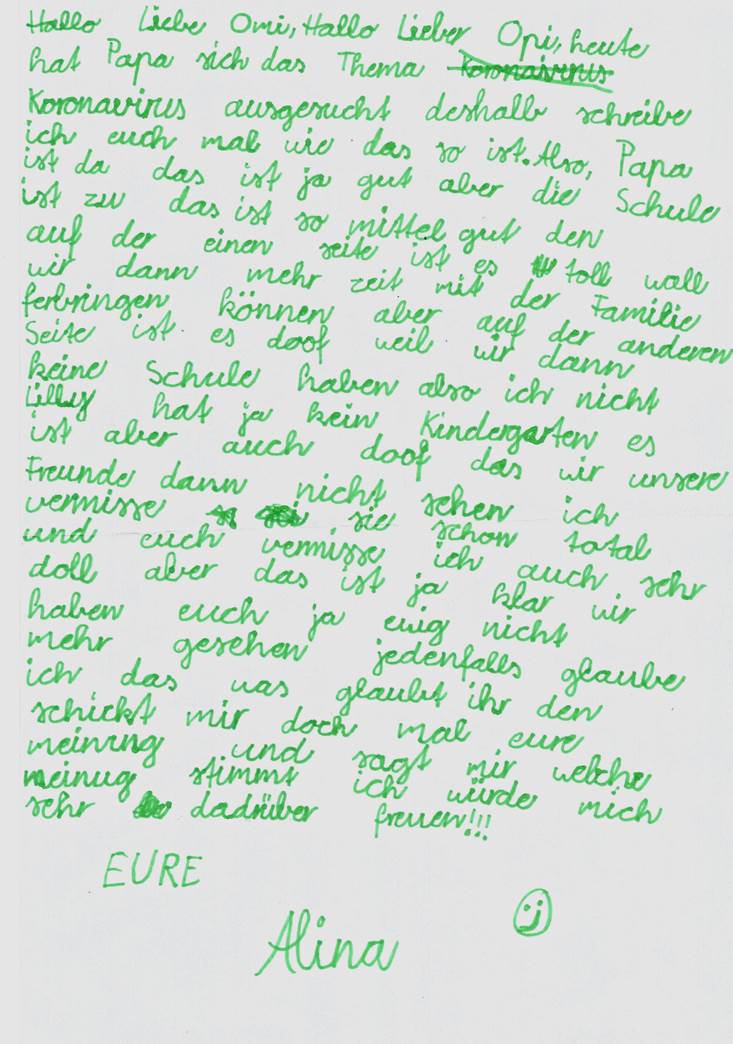 Hallo Liebe Omi, Hallo Lieber Opi, heute
hat Papa sich das Thema Koronavirus
Koronavirus ausgesucht deshalb schreibe
ich euch mal wie das so ist. Also, Papa
ist da das ist ja gut aber die Schule
ist zu das ist so mittel gut den
auf der einen seite ist es toll wall
wir dann mehr zeit mit der Familie
ferbringen können aber auf der anderen
Seite ist es doof weil wir dann
keine Schule haben also ich nicht
Lilly hat ja kein Kindergarten es
ist aber auch doof das wir unsere
Freunde dann nicht sehen ich
vermisse sie schon total
und euch vermisse ich auch sehr
doll aber das ist ja klar wir
haben euch ja ewig nicht
mehr gesehen jedenfalls glaube
ich das was glaubt ihr den
schickt mir doch mal eure
meinung und sagt mir welche
meinug stimmt ich würde mich
sehr dadrüber freuen!!!
EURE
Alina